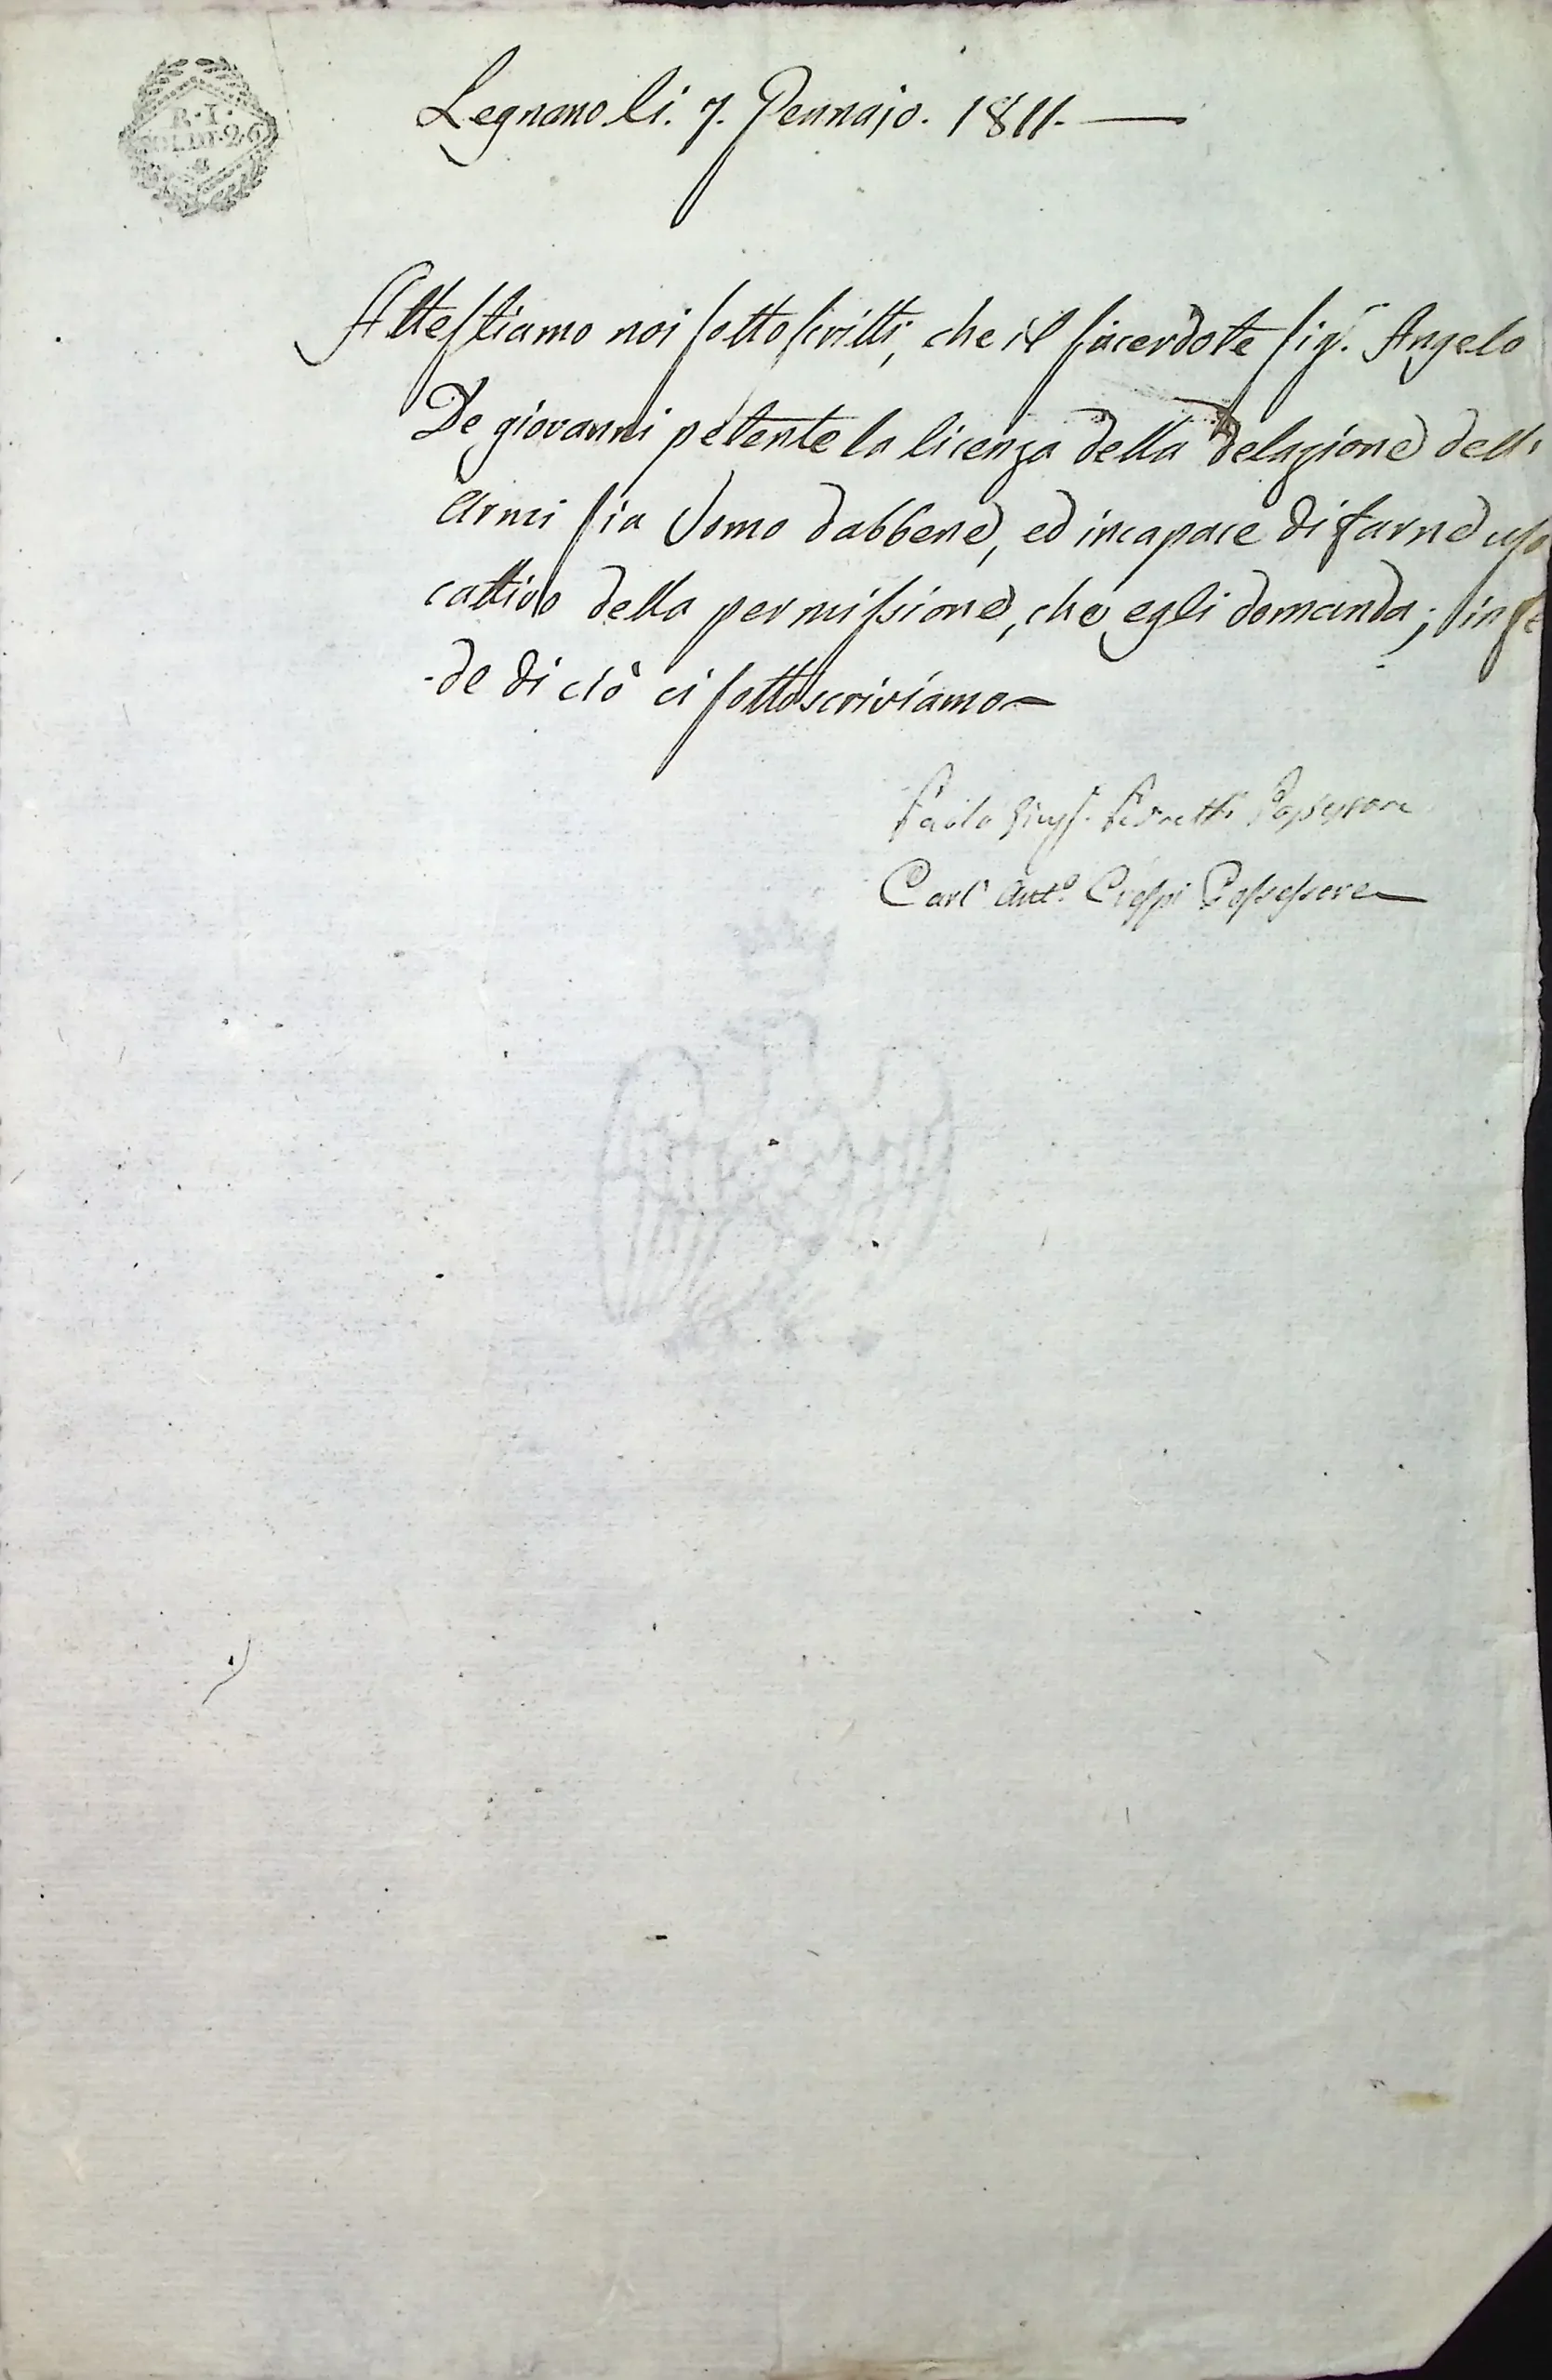 R. I.
SOLDI. 26
Legnano li. 7. Gennajo. 1811. —
Attestiamo noi sottoscritti, che il sacerdote Sig.r Angelo
De giovanni petente la licenza della delazione dell'
Armi sia Uomo dabbene, ed incapace di farne uso
cattivo della permissione, che egli domanda; in fe
-de di ciò ci sottoscriviamo —
Paolo Possessore
Carl' Ant.o Crespi Possessore